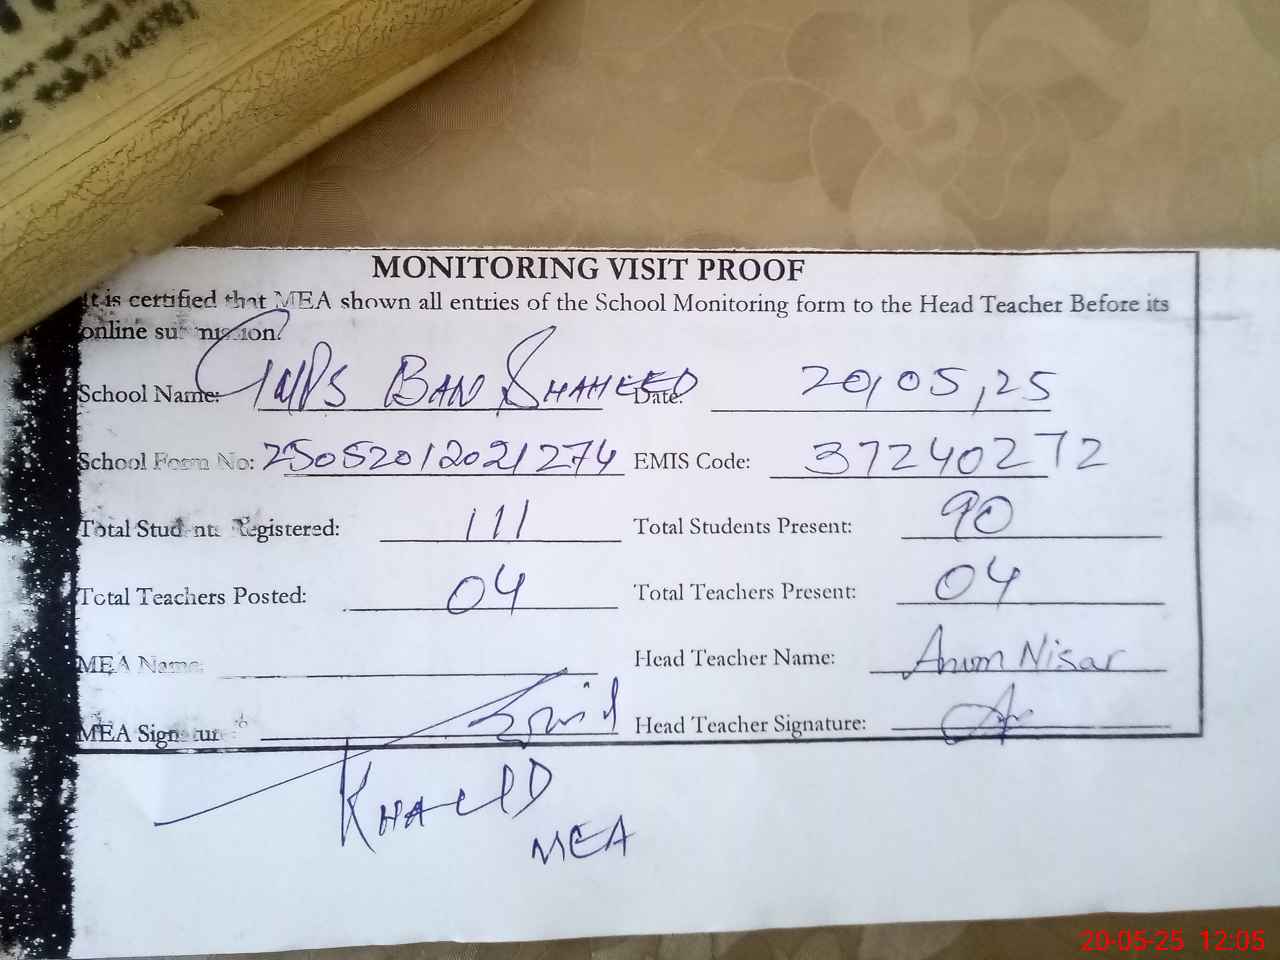 MONITORING VISIT PROOF
It is certified that MEA shown all entries of the School Monitoring form to the Head Teacher Before its
online submission.
School Name: GMPS BAN SHAHEED Date: 20,05,25
School Form No: 25052012021274 EMIS Code: 37240272
Total Students Registered: 111 Total Students Present: 90
Total Teachers Posted: 04 Total Teachers Present: 04
MEA Name: Head Teacher Name: Anum Nisar
MEA Signature: Head Teacher Signature:
KHALID
MEA
20-05-25 12:05